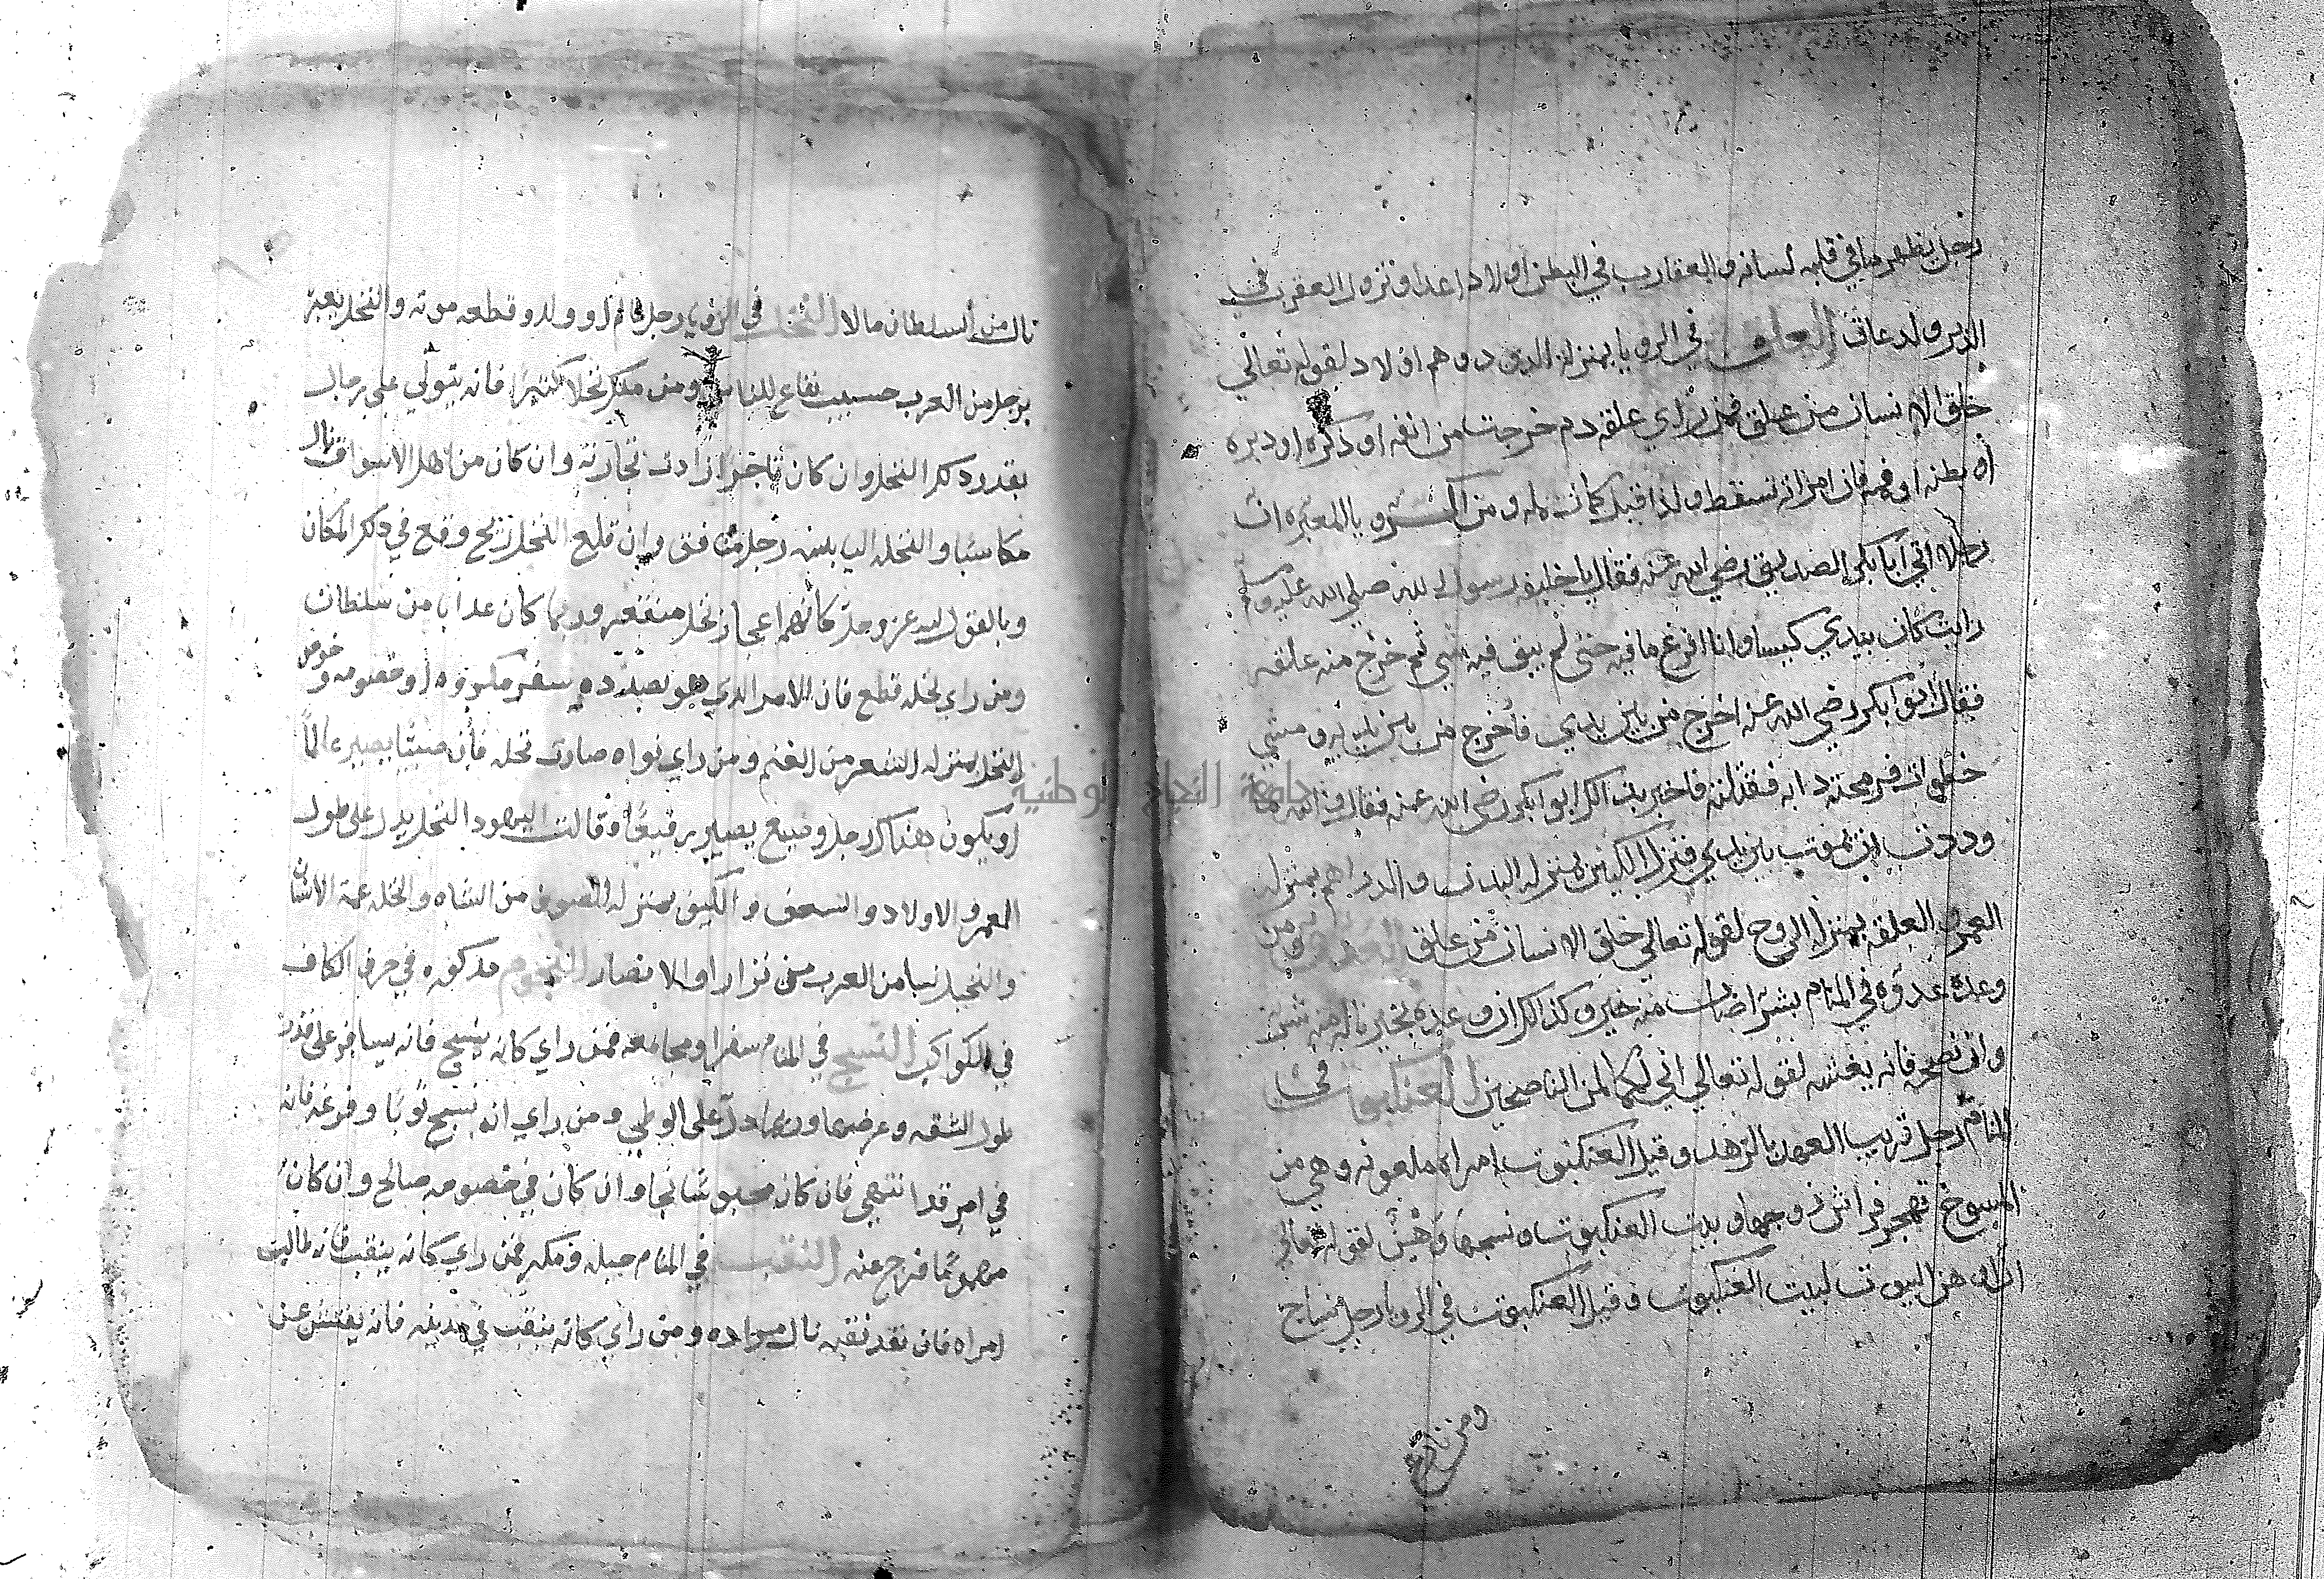 رجل يظهر ما في قلبه لسانه والعقارب في البطن اولاد اعدا ونزول العقرب في
الدبر ولد عاق العلق في الرويا بمنزله الدود وهم اولاد لقوله تعالي
خلق الانسان من علق فمن راي علقه دم خرجت من انفه او ذكره او دبره
او بطنه او فمه فان امراته تسقط ولدا قبل كماله ومن الرويا المعبره ان
رجلا اتي ابا بكر الصديق رضي الله عنه فقال يا خليفه رسول الله صلي الله عليه وسلم
رايت كان بيدي كيسا وانا افرغ ما فيه حتي لم يبق فيه شي ثم خرج منه علقه
فقال ابو ابكر رضي الله عنه اخرج من بين يدي فاخرج من بين يديه ومشي
خطوات فرمحته دابه فقتلته فاخبر بذالك ابو ابكر رضي الله عنه فقال والله ما
وددت ان يموت بين يدي فنزل الكيس بمنزله البدن والدراهم بمنزله
العمر والعلقه بمنزله الروح لقوله تعالي خلق الانسان من علق ومن
وعده عدوه في المنام بشر اصاب منه خير وكذالك ان وعده بخير ناله منه شر
وان نصحه فانه يغشه لقوله تعالي اني لكما لمن الناصحين العنكبوت في
المنام رجل قريب العهد بالزهد وقيل العنكبوت امراه ملعونه وهي من
المسوخ تهجر فراش زوجها وبيت العنكبوت ونسجها وهن لقوله تعالي
ان اوهن البيوت لبيت العنكبوت وقيل العنكبوت في الرويا رجل نساج
نال من السلطان مالا النخل في الرويا رجل عالم او ولد وقطعه موته والنخل يعبر
برجل من العرب حسيب نفاع للناس ومن ملك نخلا كثيرا فانه يتولي علي رجال
بقدر ذلك النخل وان كان تاجرا زادت تجارته وان كان من اهل الاسواق نال
مكاسبا والنخله اليابسه رجل منافق وان قلع النخل ريح وقع في ذلك المكان
وبا لقول الله عز وجل كانهم اعجاز نخل منقعر وربما كان عذابا من سلطان
ومن راي نخله قطع فان الامر الذي هو بصدده سفر مكروه او خصومه وخوص
النخل بمنزله الشعر من الغنم ومن راي نواه صارت نخله فان صبيا يصير عالما
او يكون هناك رجل وضيع يصير رفيعا وقالت اليهود النخل يدل علي طول
العمر والاولاد والسعف والليف بمنزله الصوف من الشاه والنخله عمة الانسان
والنخيل نسبا من العرب من نزار او الانصار النجوم مذكوره في حرف الكاف
في الكواكب النسيج في المنام سفر او مجامعه فمن راي كانه ينسج فانه يسافر علي قدر
طول الشقه وعرضها وربما دل علي الوطي ومن راي انه نسج ثوبا وفرغه فانه
في امر قد انتهي فان كان محبوسا نجا وان كان في خصومه صالح وان كان
مهموما فرج عنه النقب في المنام حيله ومكر فمن راي كانه ينقب فانه طالب
امراه فان نفد نقبه نال مراده ومن راي كانه ينقب في مدينه فانه يفتش عن
جامعة النجاح الوطنية